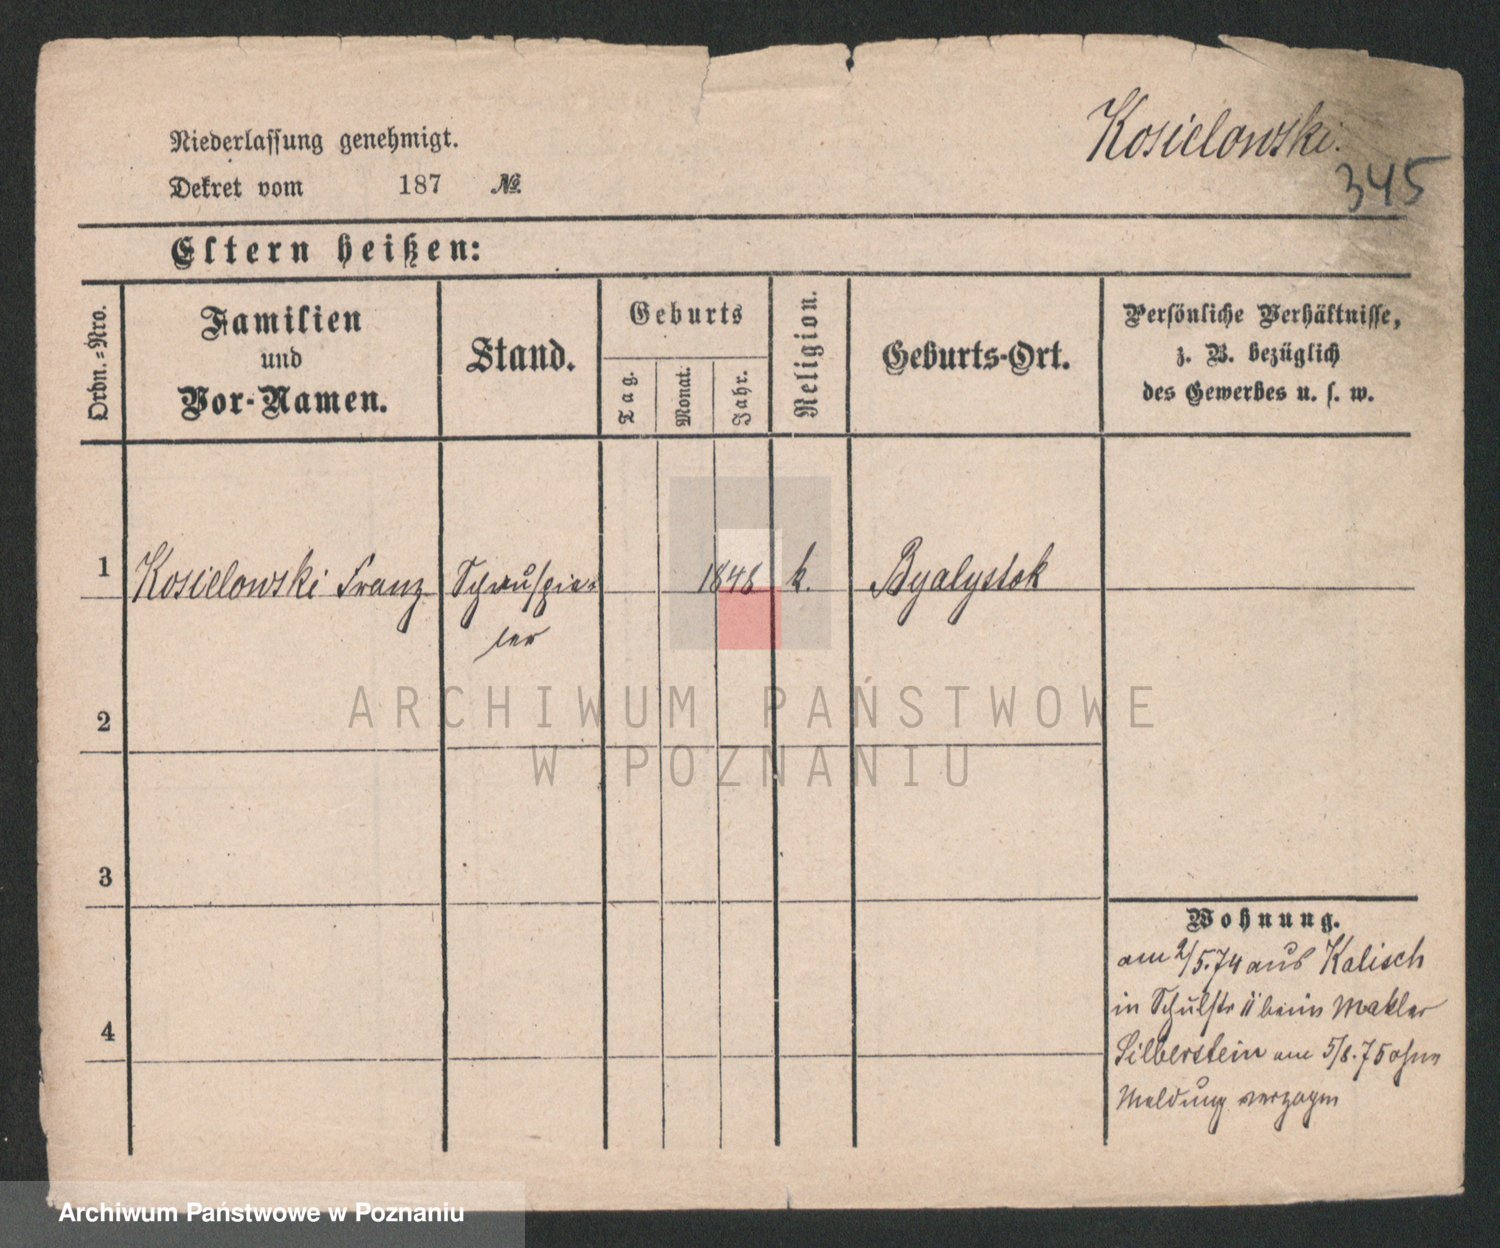 Kosielowski.
345
Niederlassung genehmigt.
Dekret vom 187 №
Eltern heißen:
Ordn.=Nro.
Familien
und
Vor-Namen.
Stand.
Geburts
Tag.
Monat.
Jahr.
Religion.
Geburts-Ort.
Persönliche Verhältnisse,
z. B. bezüglich
des Gewerbes u. s. w.
1 Kosielowski Franz Schauspie=
ler
1848 k. Byalystok
2
3
4
Wohnung.
am 2/5.74 aus Kalisch
in Schulstr 11 beim Makler
Silberstein am 5/8.75 ohne
Meldung verzogen
ARCHIWUM PAŃSTWOWE
W POZNANIU
Archiwum Państwowe w Poznaniu